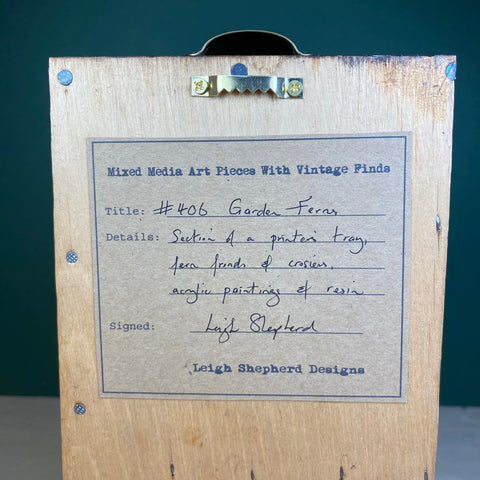 Mixed Media Art Pieces With Vintage Finds
Title: #406 Garden Ferns
Details: Section of a printers tray,
fern fronds & crosiers,
acrylic paintings & resin
Signed: Leigh Shepherd
Leigh Shepherd Designs